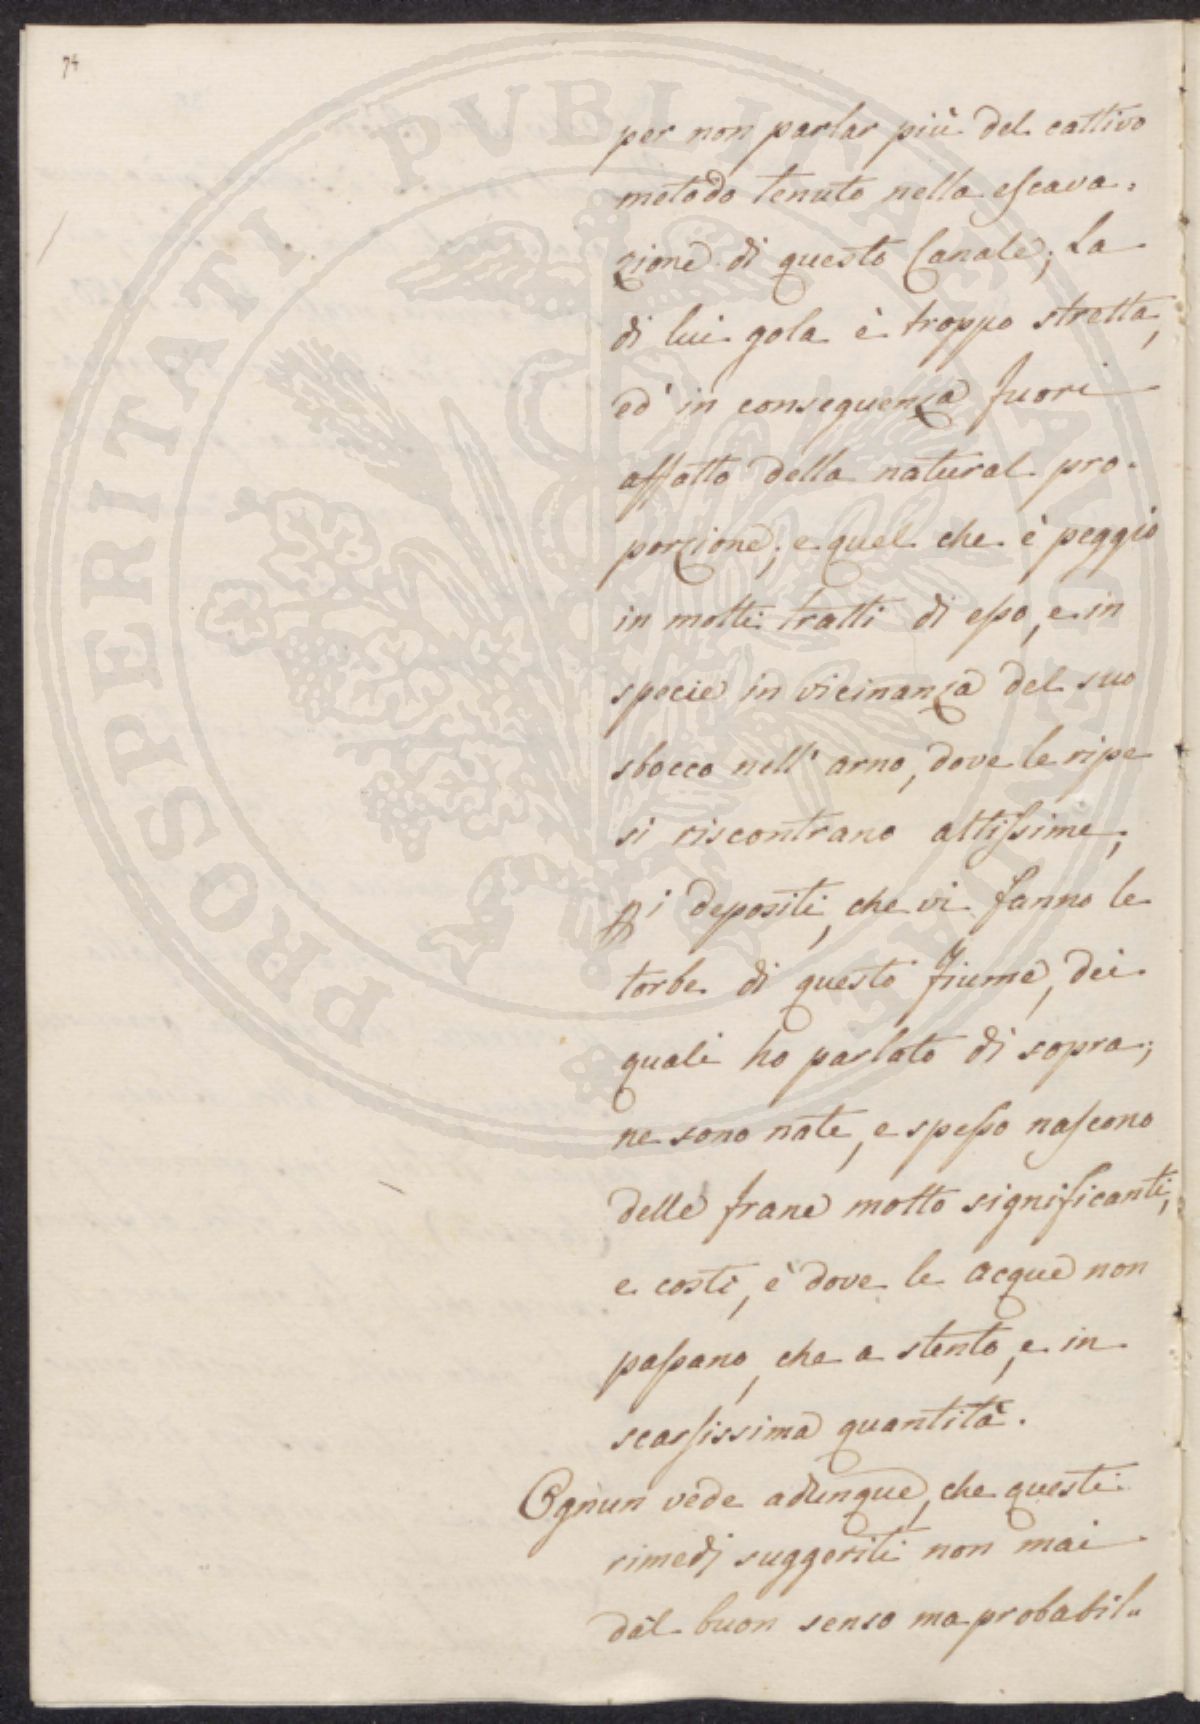 74
PROSPERITATI PVBLICAE AVGENDAE
per non parlar più del cattivo
metodo tenuto nella escava=
zione di questo Canale; La
di lui gola è troppo stretta,
ed in conseguenza fuori
affatto della natural pro-
porzione; e quel che è peggio
in molti tratti di esso, e in
specie in vicinanza del suo
sbocco nell' arno, dove le ripe
si riscontrano altissime,
p i depositi, che vi fanno le
torbe di questo fiume, dei
quali ho parlato di sopra;
ne sono nate, e spesso nascono
delle frane molto significanti,
e costì, è dove le acque non
passano, che a stento, e in
scarsissima quantità.
Ognun vede adunque, che questi
rimedj suggeriti non mai
dal buon senso ma probabil=